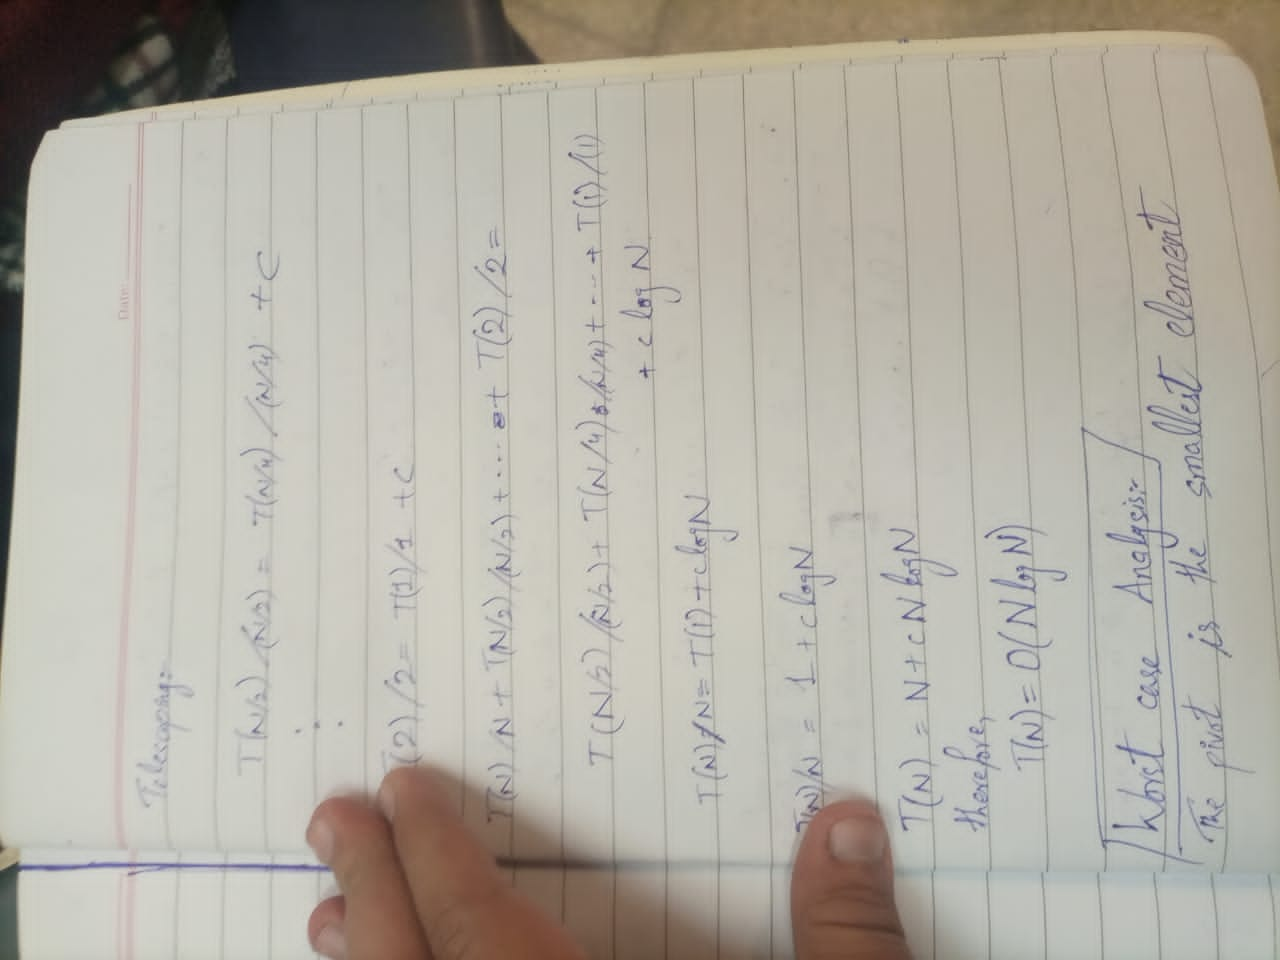 Date:
Telescoping:
T(N/2)/(N/2) = T(N/4)/(N/4) + C
:
T(2)/2 = T(1)/1 + C
T(N)/N + T(N/2)/(N/2) + .... + T(2)/2 =
T(N/2)/(N/2) + T(N/4)/(N/4) + ... + T(1)/(1)
+ c log N
T(N)/N = T(1) + c log N
T(N)/N = 1 + c log N
T(N) = N + c N log N
therefore,
T(N) = O(N log N)
Worst case Analysis:-
The pivot is the smallest element